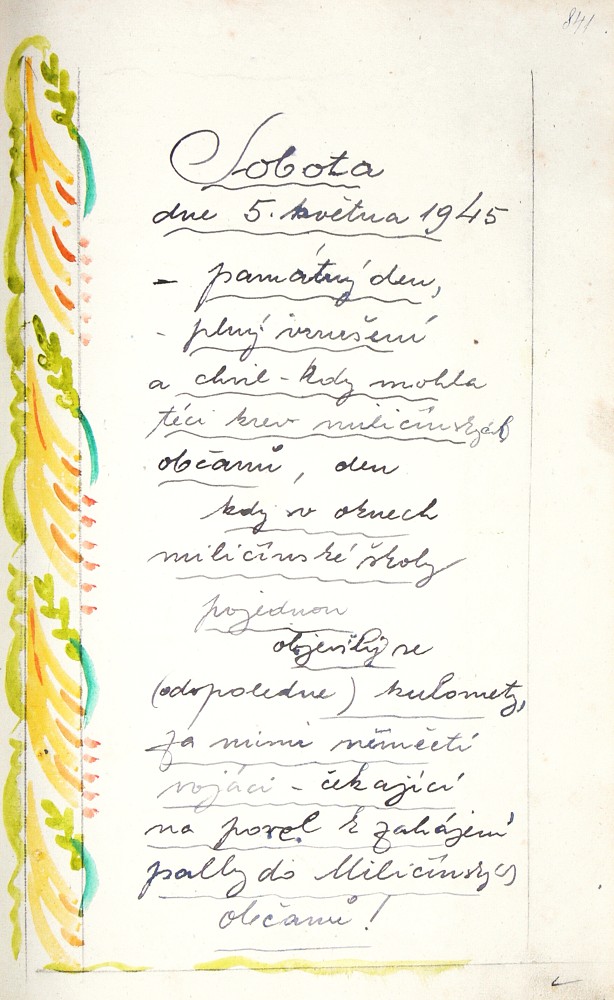 841
Sobota
dne 5. května 1945
- památný den,
- plný vzrušení
a chvil - kdy mohla
téci krev miličínských
občanů, den
kdy v oknech
miličínské školy
pojednou
objevily se
(odpoledne) kulomety,
za nimi němečtí
vojáci - čekající
na povel k zahájení
palby do Miličínských
občanů!